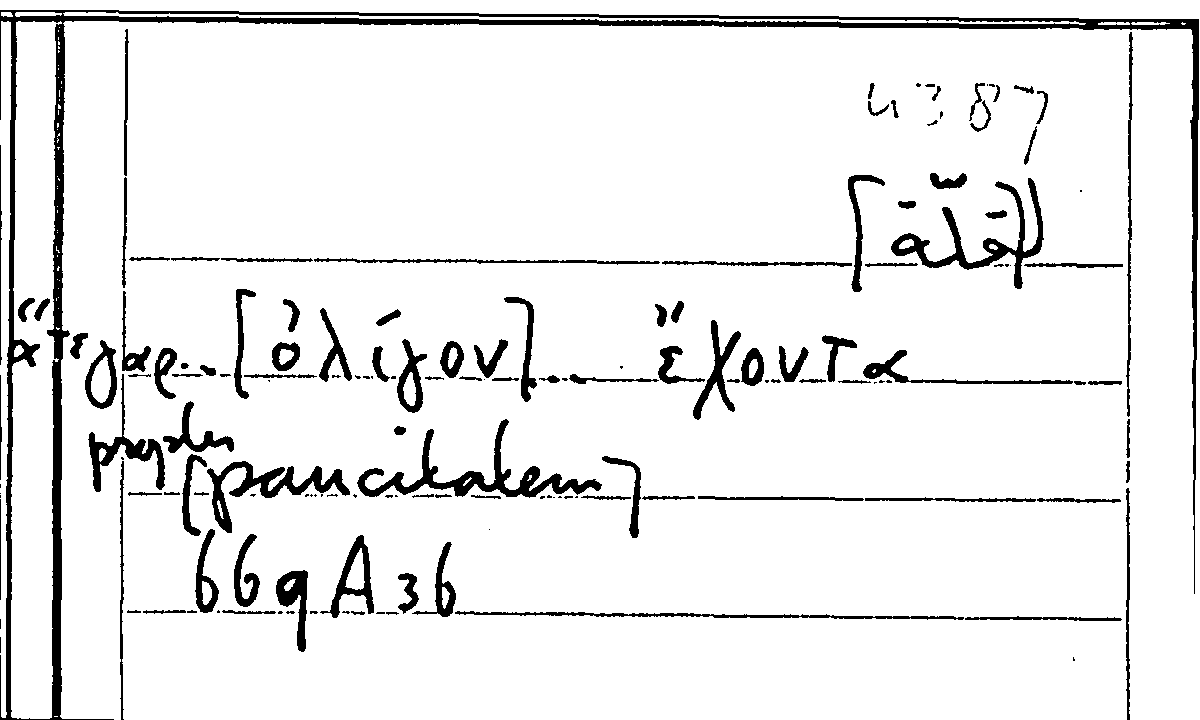 4387
ἅτε γαρ.. [ὀλίγον]... ἔχοντα
propter
[paucitatem]
669A36